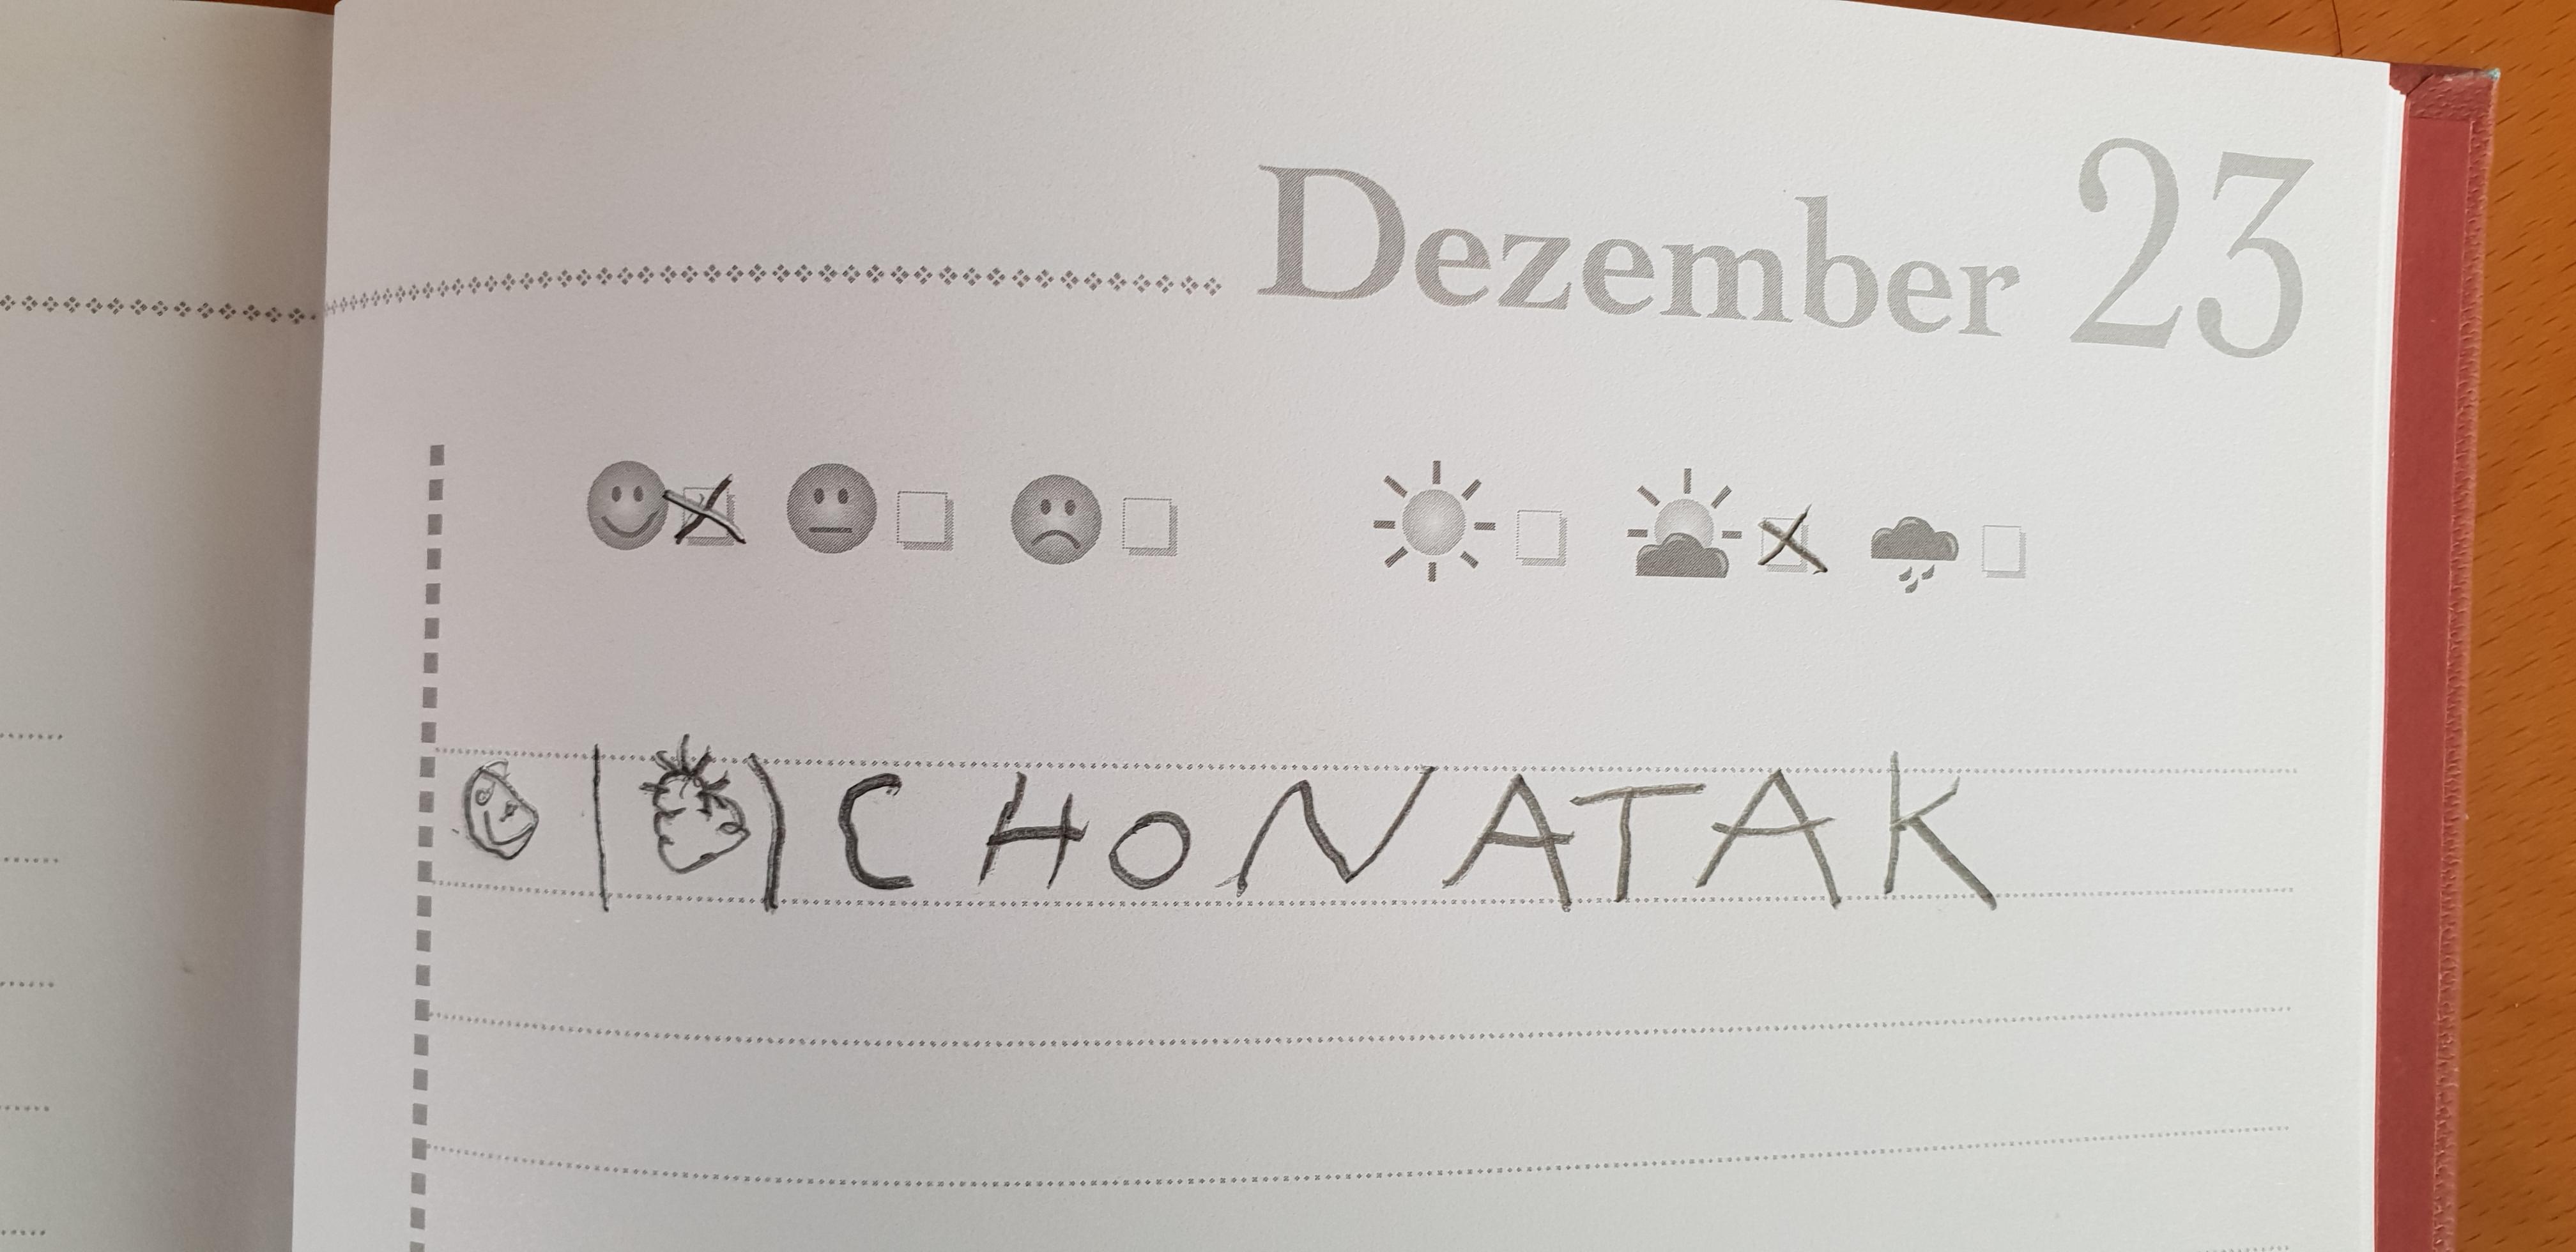 Dezember 23
CHONATAK